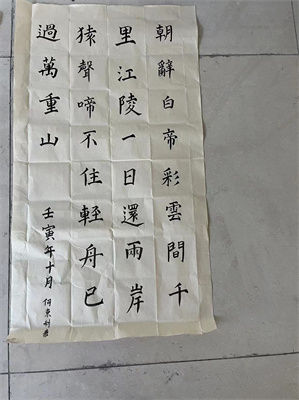 朝辭白帝彩雲間千
里江陵一日還兩岸
猿聲啼不住輕舟已
過萬重山
壬寅年十月